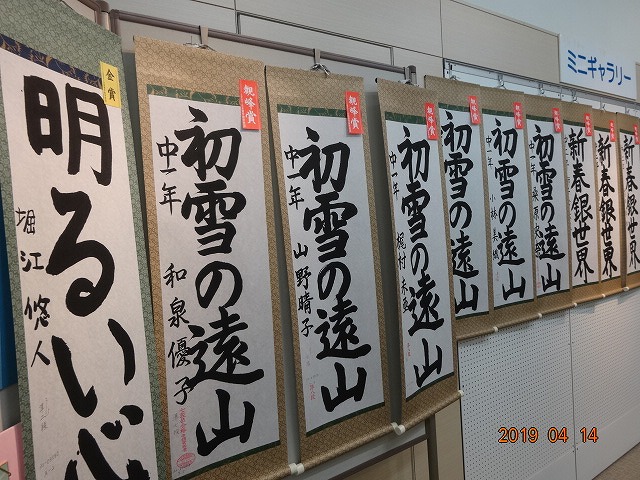 ミニギャラリー
金賞
明るい心
堀江悠人
親峰賞
初雪の遠山
中一年
和泉優子
親峰賞
初雪の遠山
中一年
山野晴子
親峰賞
初雪の遠山
中一年
梶村
親峰賞
初雪の遠山
親峰賞
初雪の遠山
中一年
小林
親峰賞
初雪の遠山
中一年
桑原
新春銀世界
新春銀世界
新春銀世界
2019 04 14